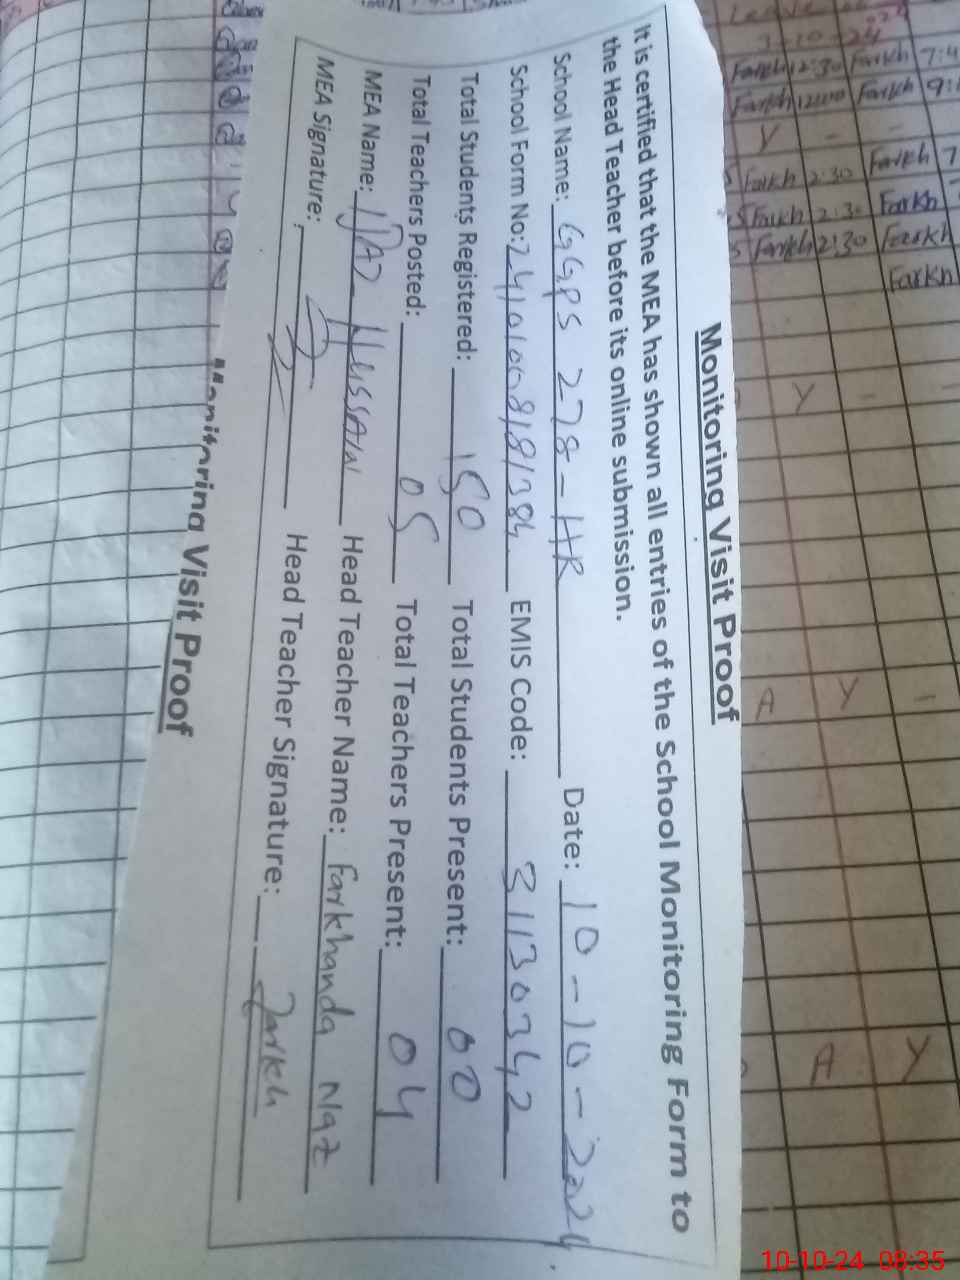 Monitoring Visit Proof
It is certified that the MEA has shown all entries of the School Monitoring Form to
the Head Teacher before its online submission.
School Name: GGPS 278-HR Date: 10-10-2024
School Form No: EMIS Code: 31130342
Total Students Registered: 150 Total Students Present: 00
Total Teachers Posted: 05 Total Teachers Present: 04
MEA Name: IJAZ HUSSAIN Head Teacher Name: Farkhanda Naz
MEA Signature: Head Teacher Signature: Farkh
Monitoring Visit Proof
Farkh 12:30 Farkh 7:4
Farkh 12:00 Farkh 9:
Y - -
Farkh 2:30 Farkh 7
Farkh 2:30 Farkh
Farkh 2:30 Farkh
Farkh
Y -
A Y -
A Y
10-10-24 08:35